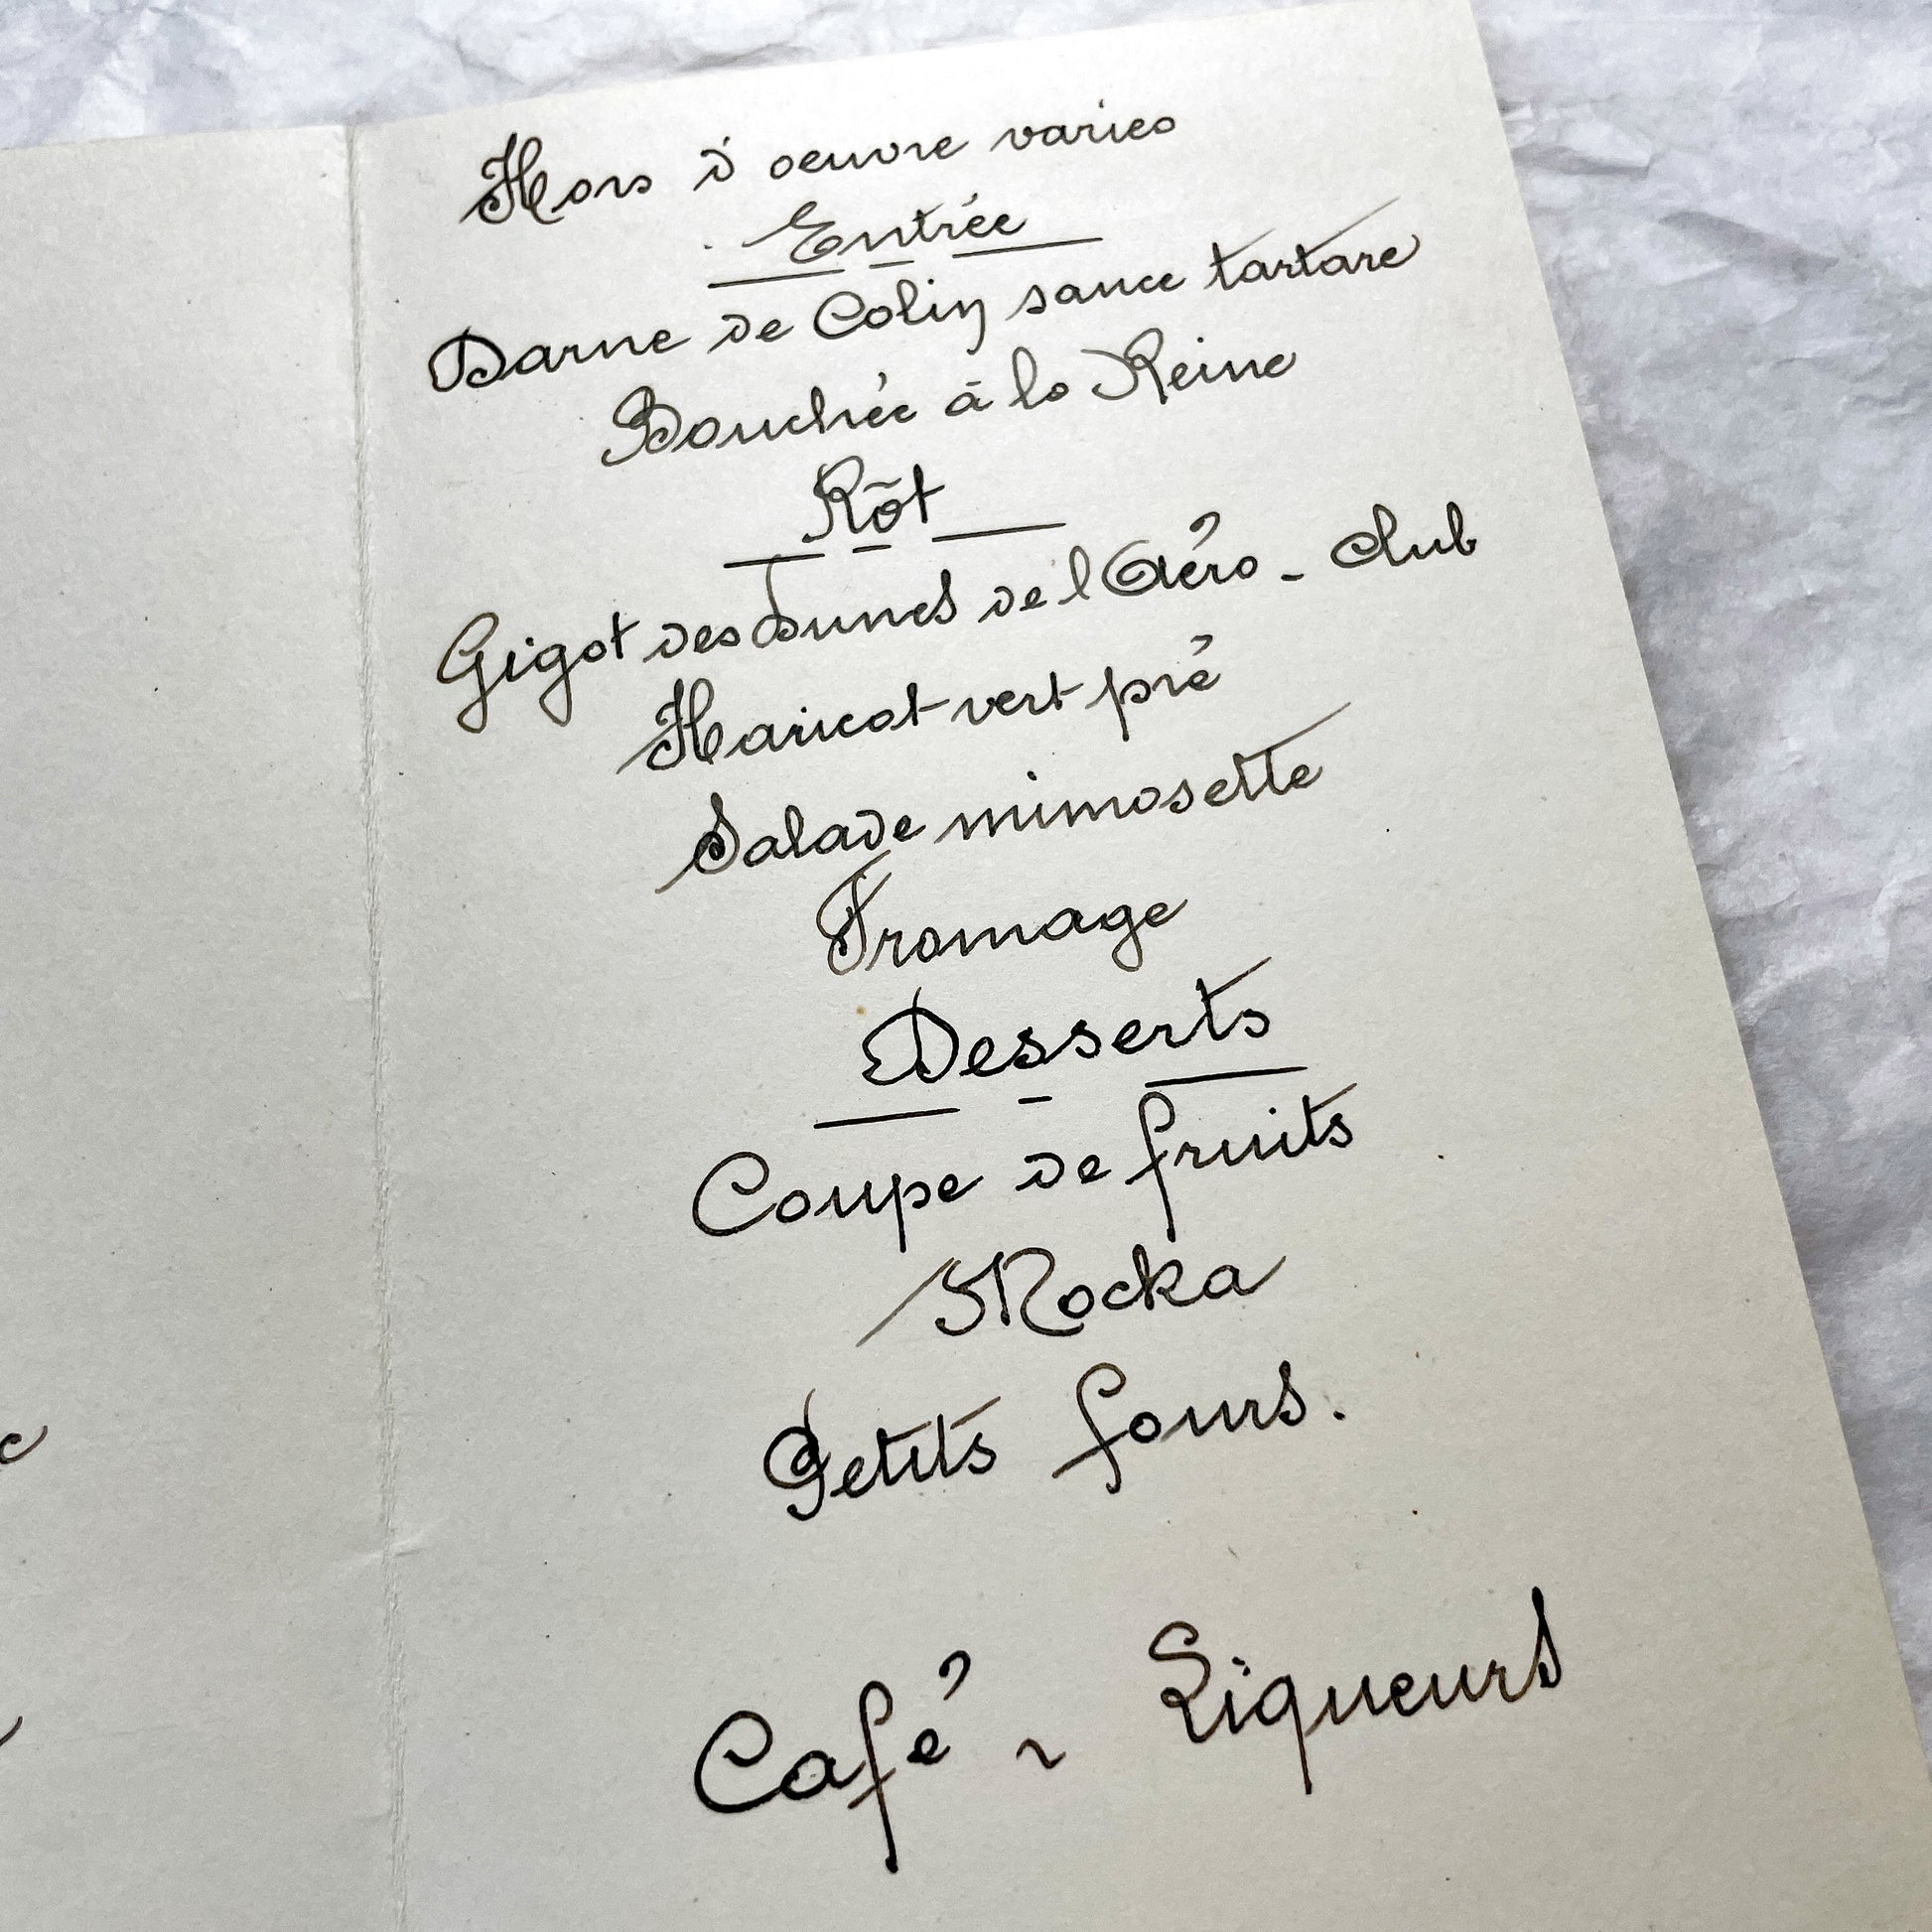 Hors d'oeuvre varies
Entrée
Darne de Colin sauce tartare
Bouchée à la Reine
Rôt
Gigot des Dunes de l Aéro-Club
Haricot vert pré
Salade mimosette
Fromage
Desserts
Coupe de fruits
Mocka
Petits fours.
Café ~ Liqueurs